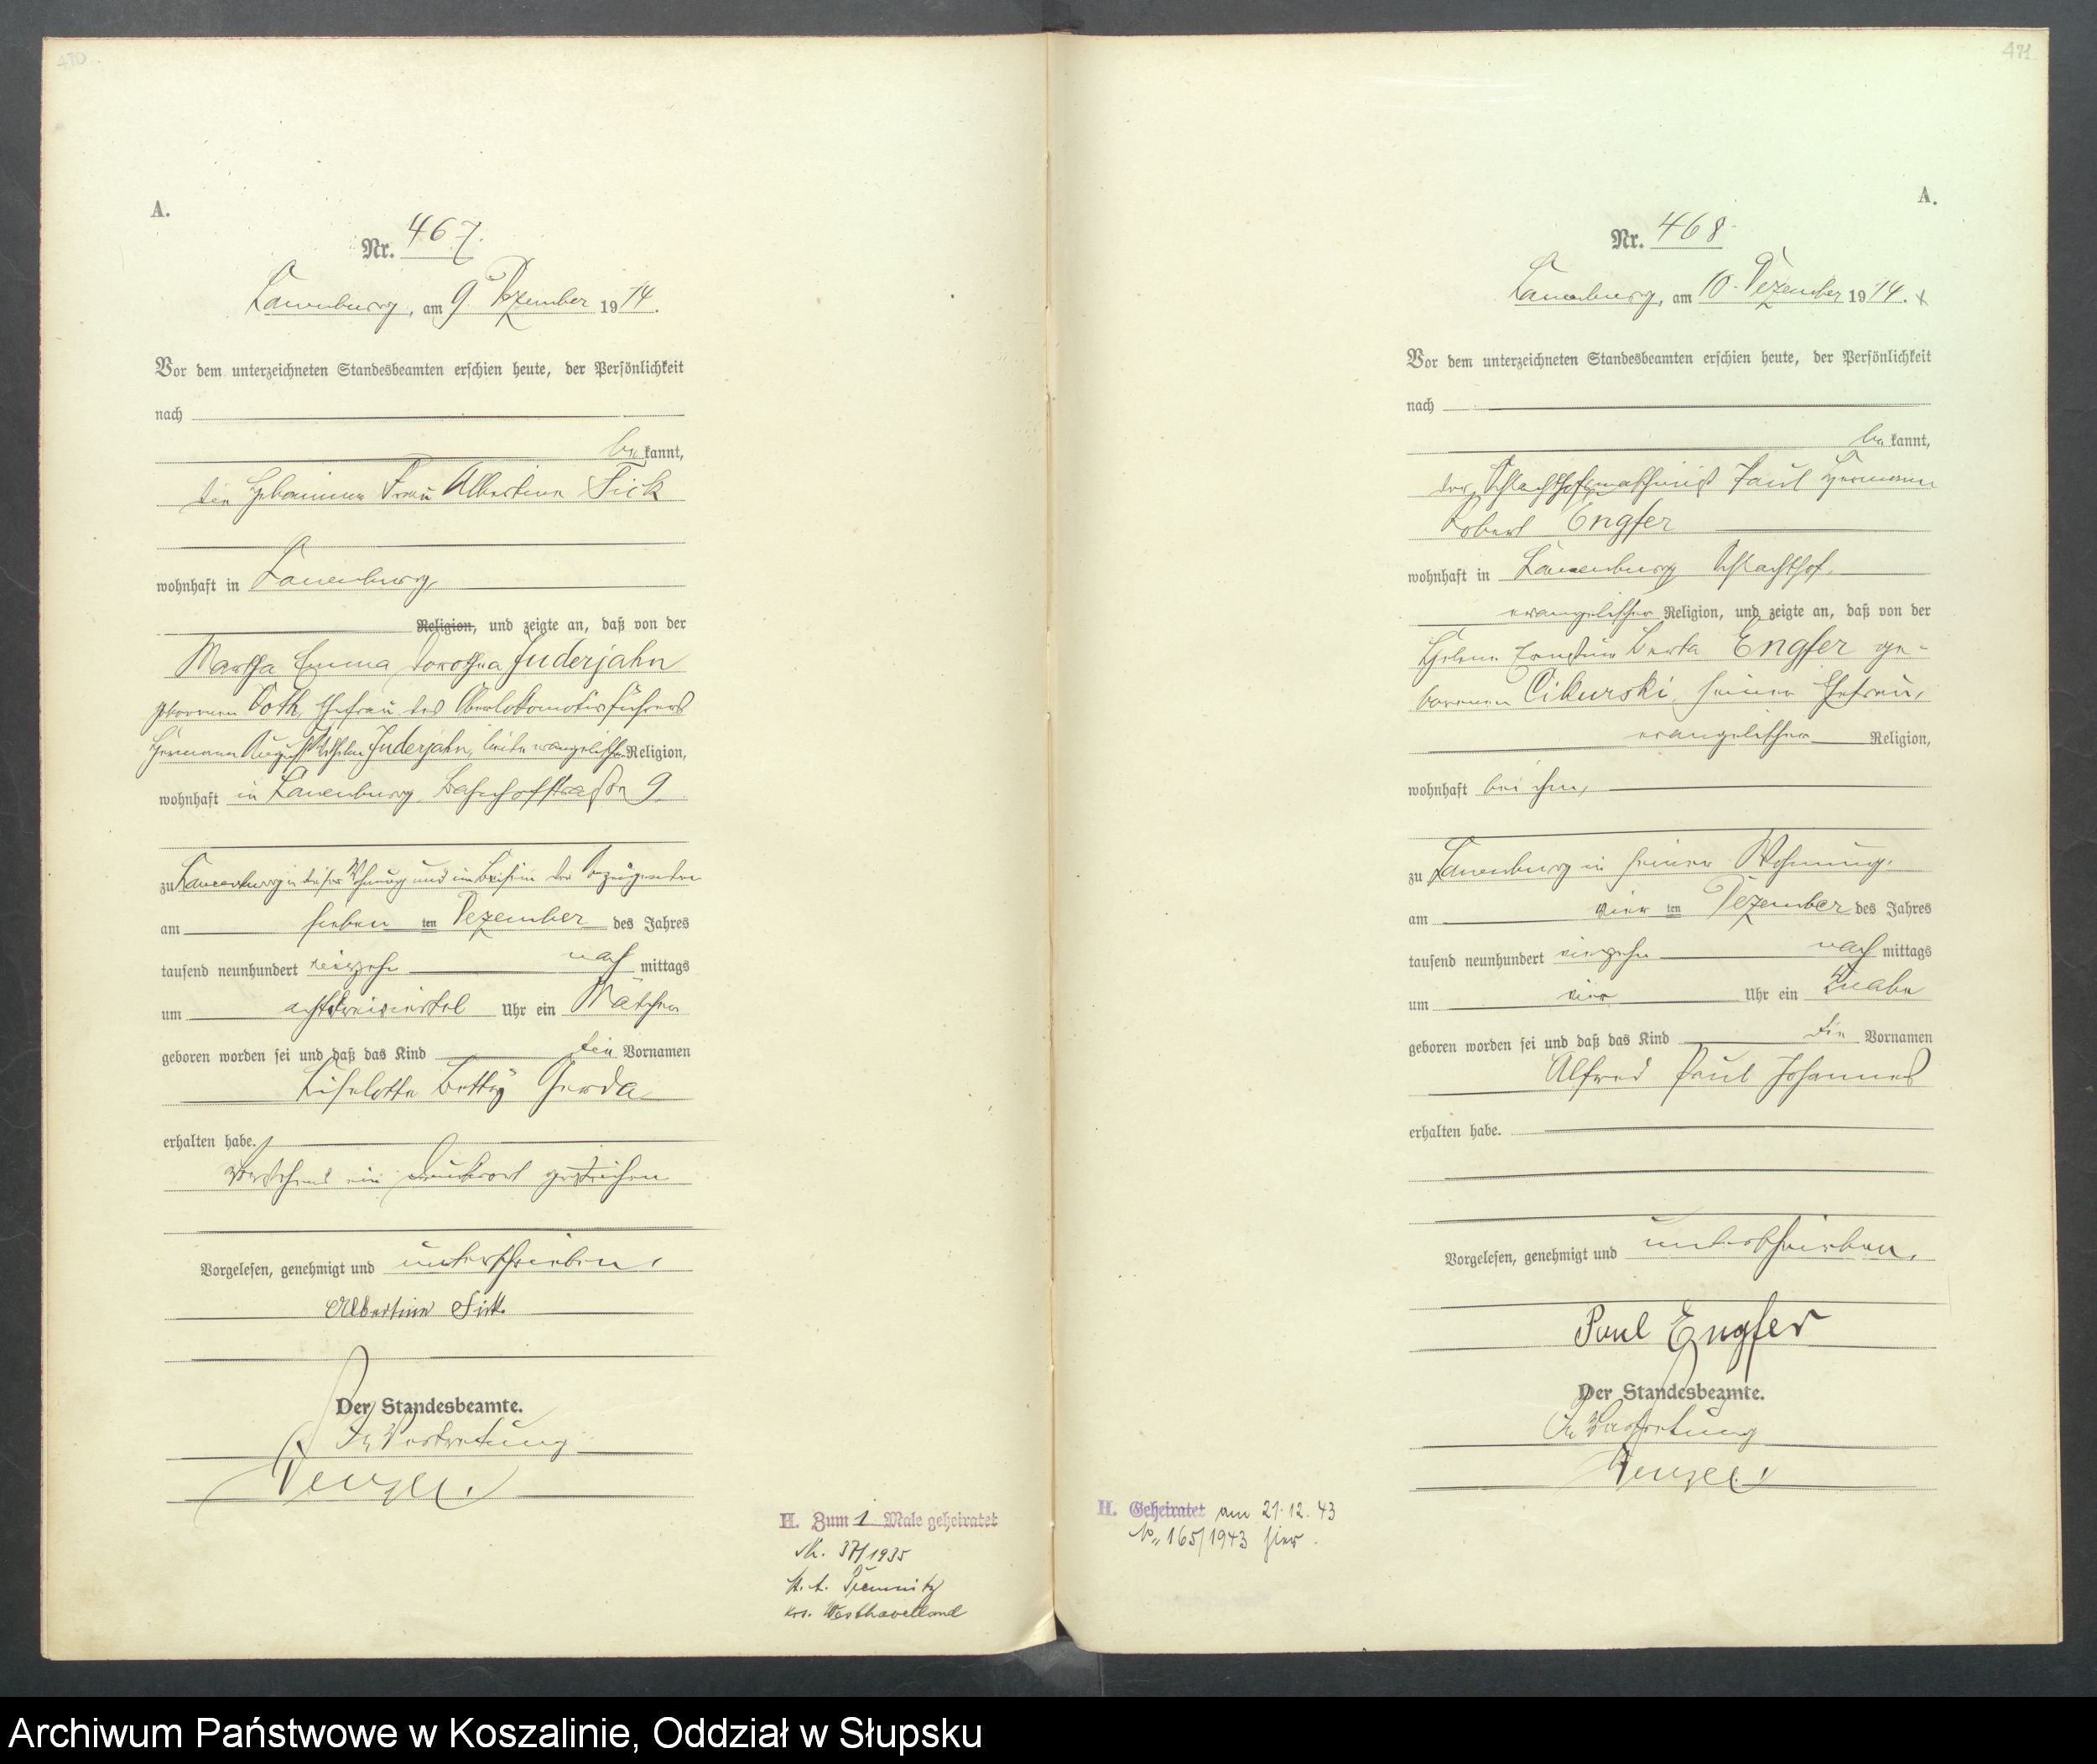 470
A.
Nr. 467.
Lauenburg, am 9. Dezember 1914.
Vor dem unterzeichneten Standesbeamten erschien heute, der Persönlichkeit
nach
be kannt,
die Hebamme Frau Albertine Fick
wohnhaft in Lauenburg,
Religion, und zeigte an, daß von der
Martha Emma Dorothea Juderjahn
geborenen Voth, Ehefrau des Oberlokomotivführers
Hermann August Wilhelm Juderjahn, beide evangelischer Religion,
wohnhaft in Lauenburg, Bahnhofstraße 9
zu Lauenburg in dieser Wohnung und im Beisein der Anzeigenden
am sieben ten Dezember des Jahres
tausend neunhundert vierzehn nach mittags
um acht dreiviertel Uhr ein Mädchen
geboren worden sei und daß das Kind die Vornamen
Liselotte Betty Gerda
erhalten habe.
Vorstehend ein Druckwort gestrichen
Vorgelesen, genehmigt und unterschrieben.
Albertine Fick.
Der Standesbeamte.
In Vertretung
Wenzel.
H. Zum 1 Male geheiratet
Nr. 37/1935
St. A. Premnitz
Krs. Westhavelland
471
A.
Nr. 468
Lauenburg, am 10. Dezember 1914.
Vor dem unterzeichneten Standesbeamten erschien heute, der Persönlichkeit
nach
be kannt,
der Schlachthofmaschinist Paul Hermann
Robert Engfer
wohnhaft in Lauenburg Schlachthof,
evangelischer Religion, und zeigte an, daß von der
Helene Ernestine Berta Engfer ge-
borenen Cikurski, seiner Ehefrau,
evangelischer Religion,
wohnhaft bei ihm,
zu Lauenburg in seiner Wohnung,
am vier ten Dezember des Jahres
tausend neunhundert vierzehn nach mittags
um vier Uhr ein Knabe
geboren worden sei und daß das Kind die Vornamen
Alfred Paul Johannes
erhalten habe.
Vorgelesen, genehmigt und unterschrieben.
Paul Engfer
Der Standesbeamte.
In Vertretung
Wenzel.
H. Geheiratet am 21.12.43
No. 165/1943 hier.
Archiwum Państwowe w Koszalinie, Oddział w Słupsku